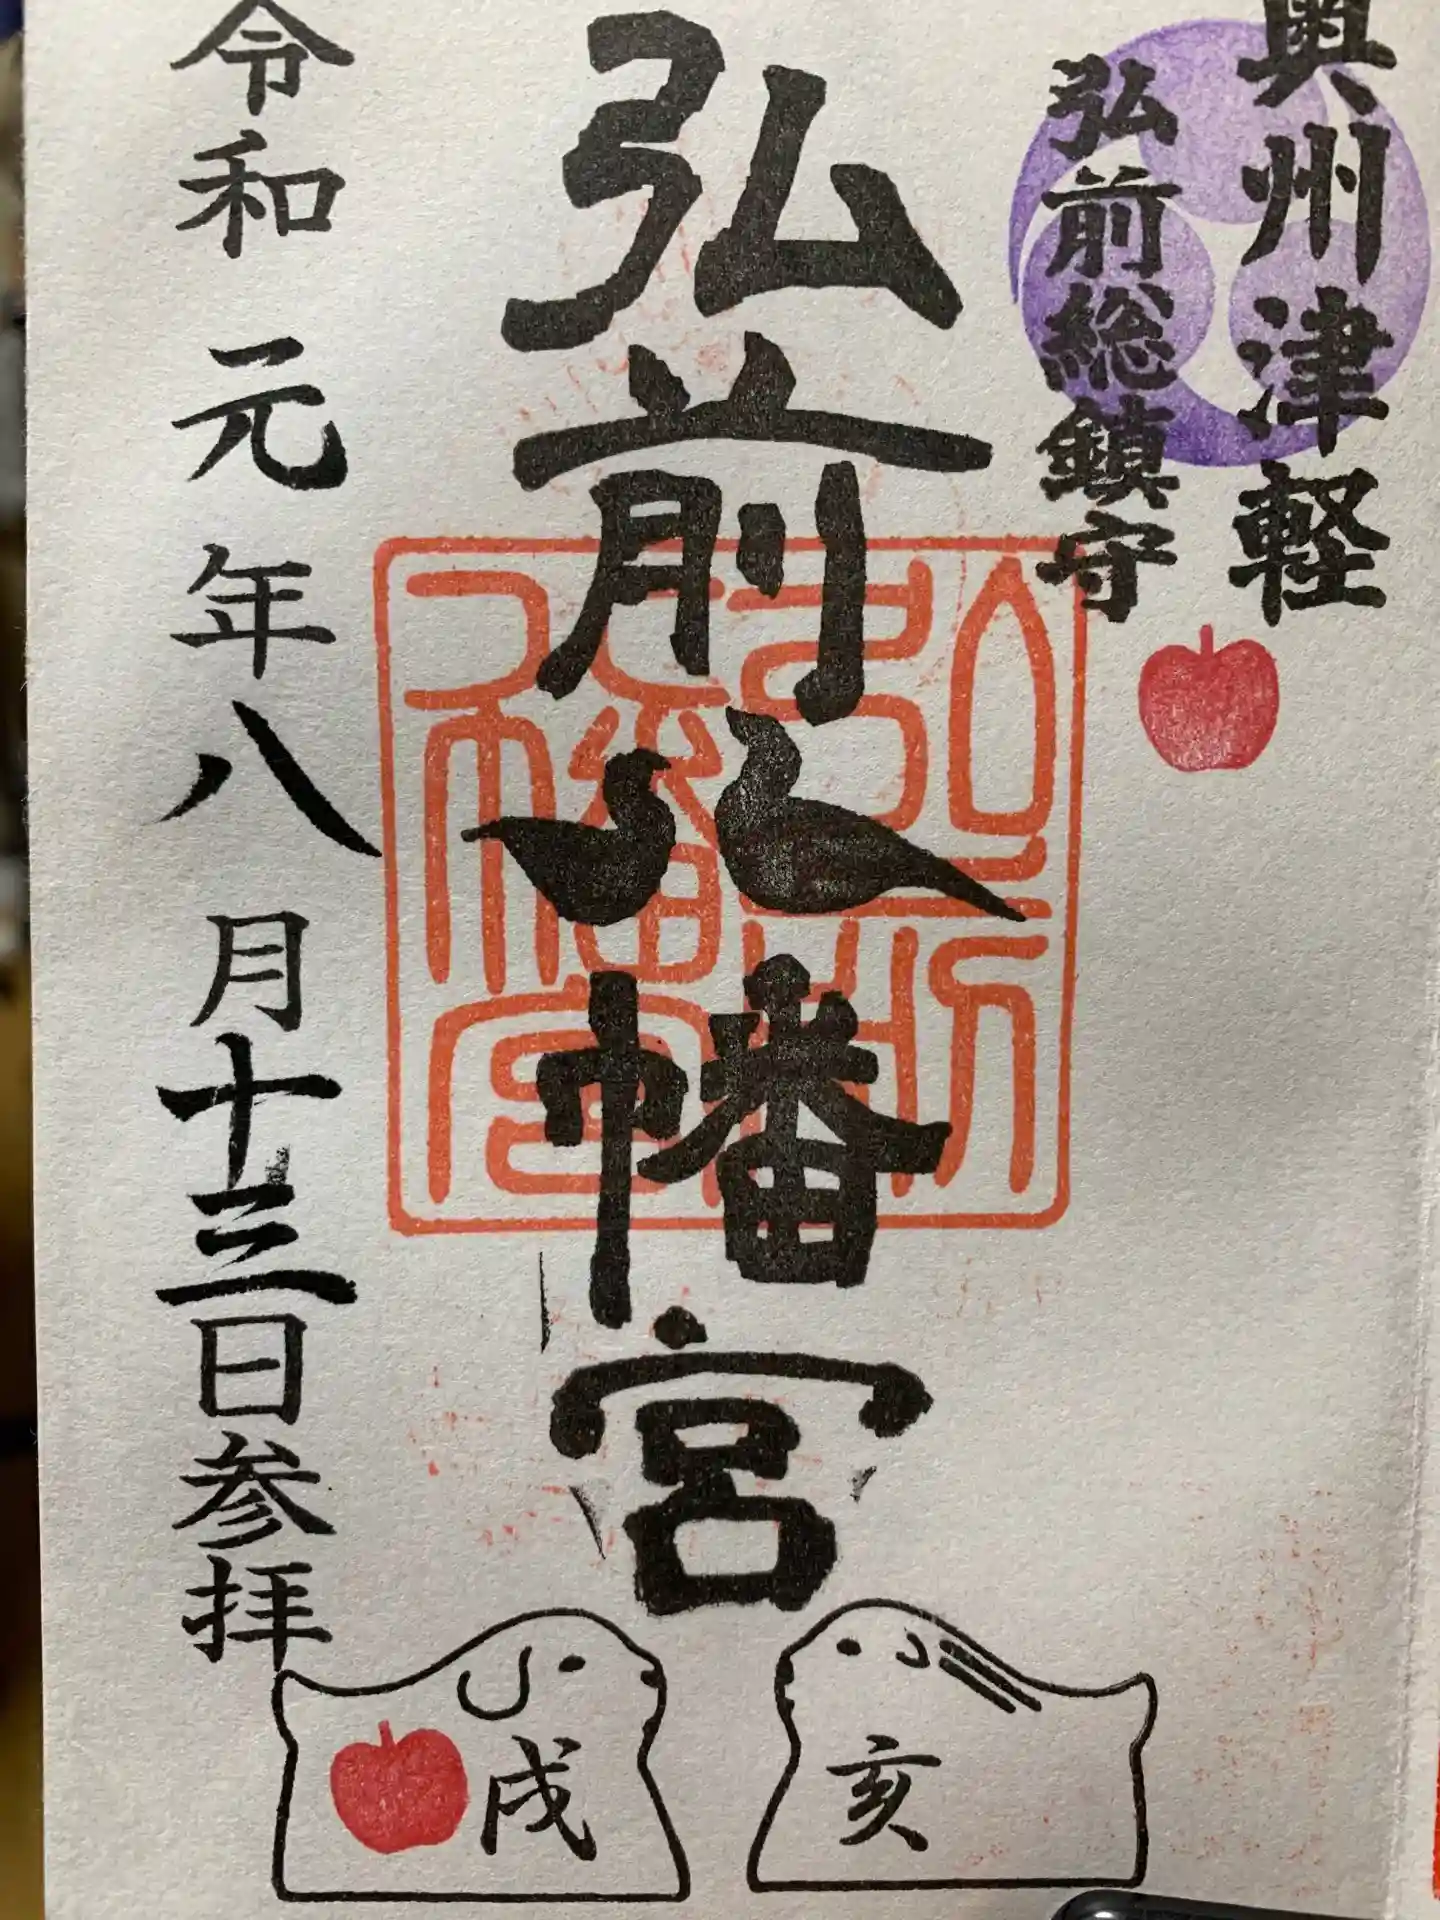 奥州津軽
弘前総鎮守
弘前八幡宮
令和元年八月十三日参拝
弘前八幡宮
戌
亥